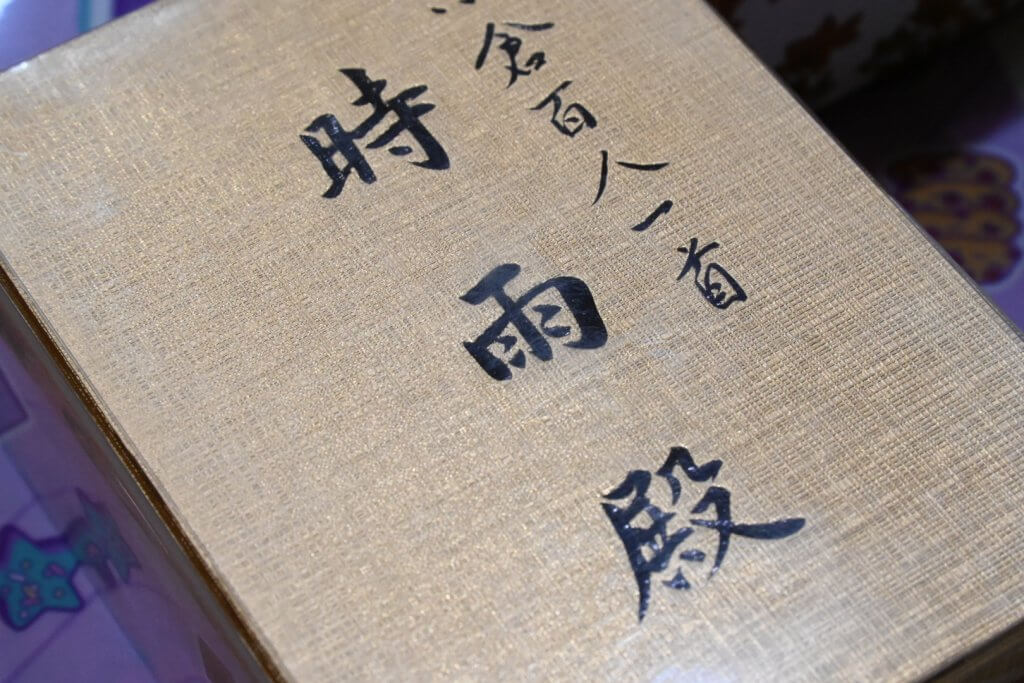 小倉百人一首
時雨殿